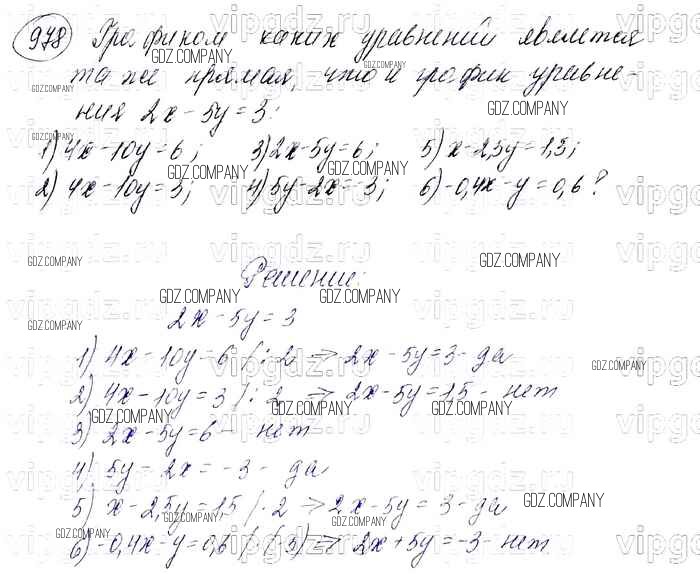 978 Графиком каких уравнений является
та же прямая, что и график уравне-
ния 2x - 5y = 3:
1) 4x - 10y = 6; 3) 2x - 5y = 6; 5) x - 2,5y = 1,5;
2) 4x - 10y = 3; 4) 5y - 2x = -3; 6) -0,4x - y = 0,6?
Решение:
2x - 5y = 3
1) 4x - 10y = 6 /: 2 => 2x - 5y = 3 - да
2) 4x - 10y = 3 /: 2 => 2x - 5y = 1,5 - нет
3) 2x - 5y = 6 - нет
4) 5y - 2x = -3 - да
5) x - 2,5y = 1,5 /· 2 => 2x - 5y = 3 - да
6) -0,4x - y = 0,6 /·(-5) => 2x + 5y = -3 - нет
vipgdz.ru
GDZ.COMPANY